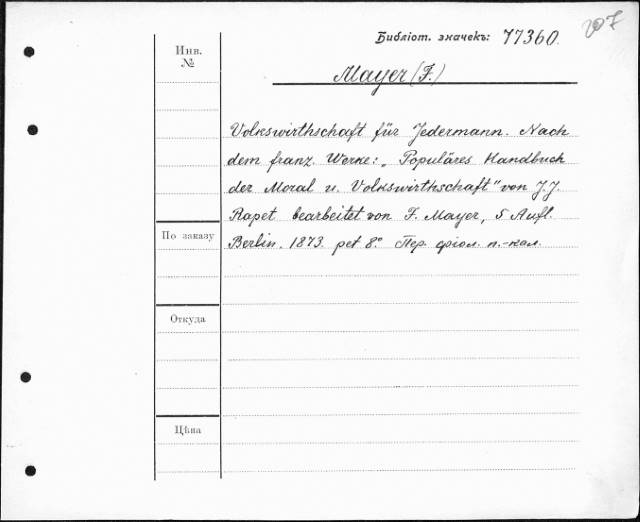 207
Библіот. значекъ: 77360.
Инв.
№
Mayer (F.)
Volkswirthschaft für Jedermann. Nach
dem franz. Werke: „Populäres Handbuch
der Moral u. Volkswirthschaft" von J. J.
Rapet bearbeitet von F. Mayer, 5 Aufl.
По заказу
Berlin. 1873. pet 8.° Пер. фіол. п.-кал.
Откуда
Цѣна